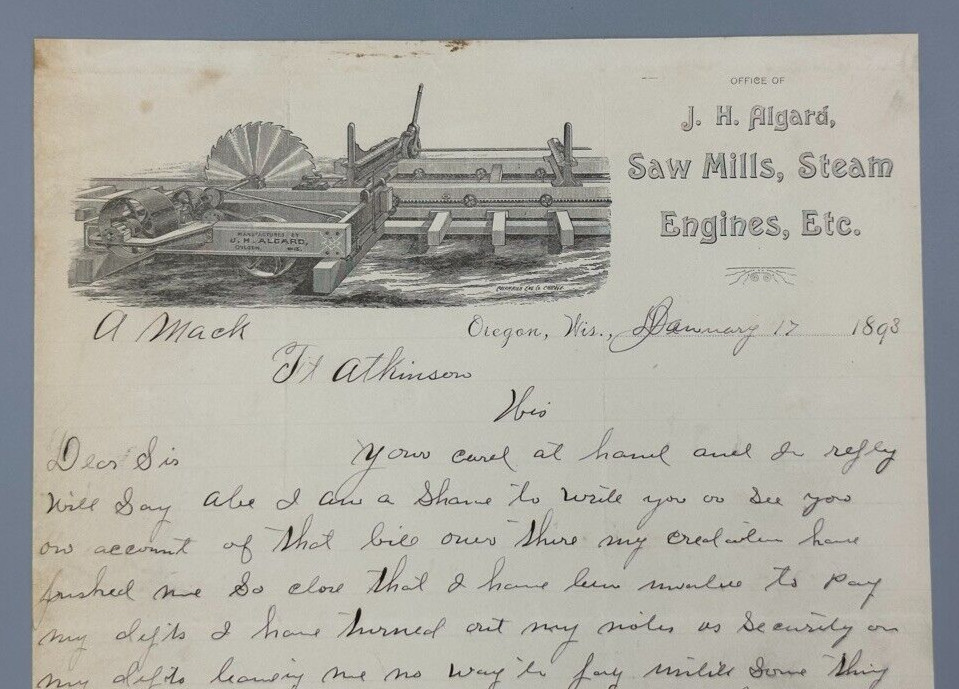 OFFICE OF
J. H. Algard,
Saw Mills, Steam
Engines, Etc.
MANUFACTURED BY
J. H. ALGARD,
OREGON, WIS.
A Mack
Oregon, Wis., January 17 1893
Ft Atkinson
Wis
Dear Sir Your card at hand and In reply
Will Say Abe I am a Shame to write you or See you
on account of that bill over there my creditors have
pushed me So close that I have been unable to pay
my depts I have turned out my notes as Security on
my depts leaving me no way to pay untill Some thing